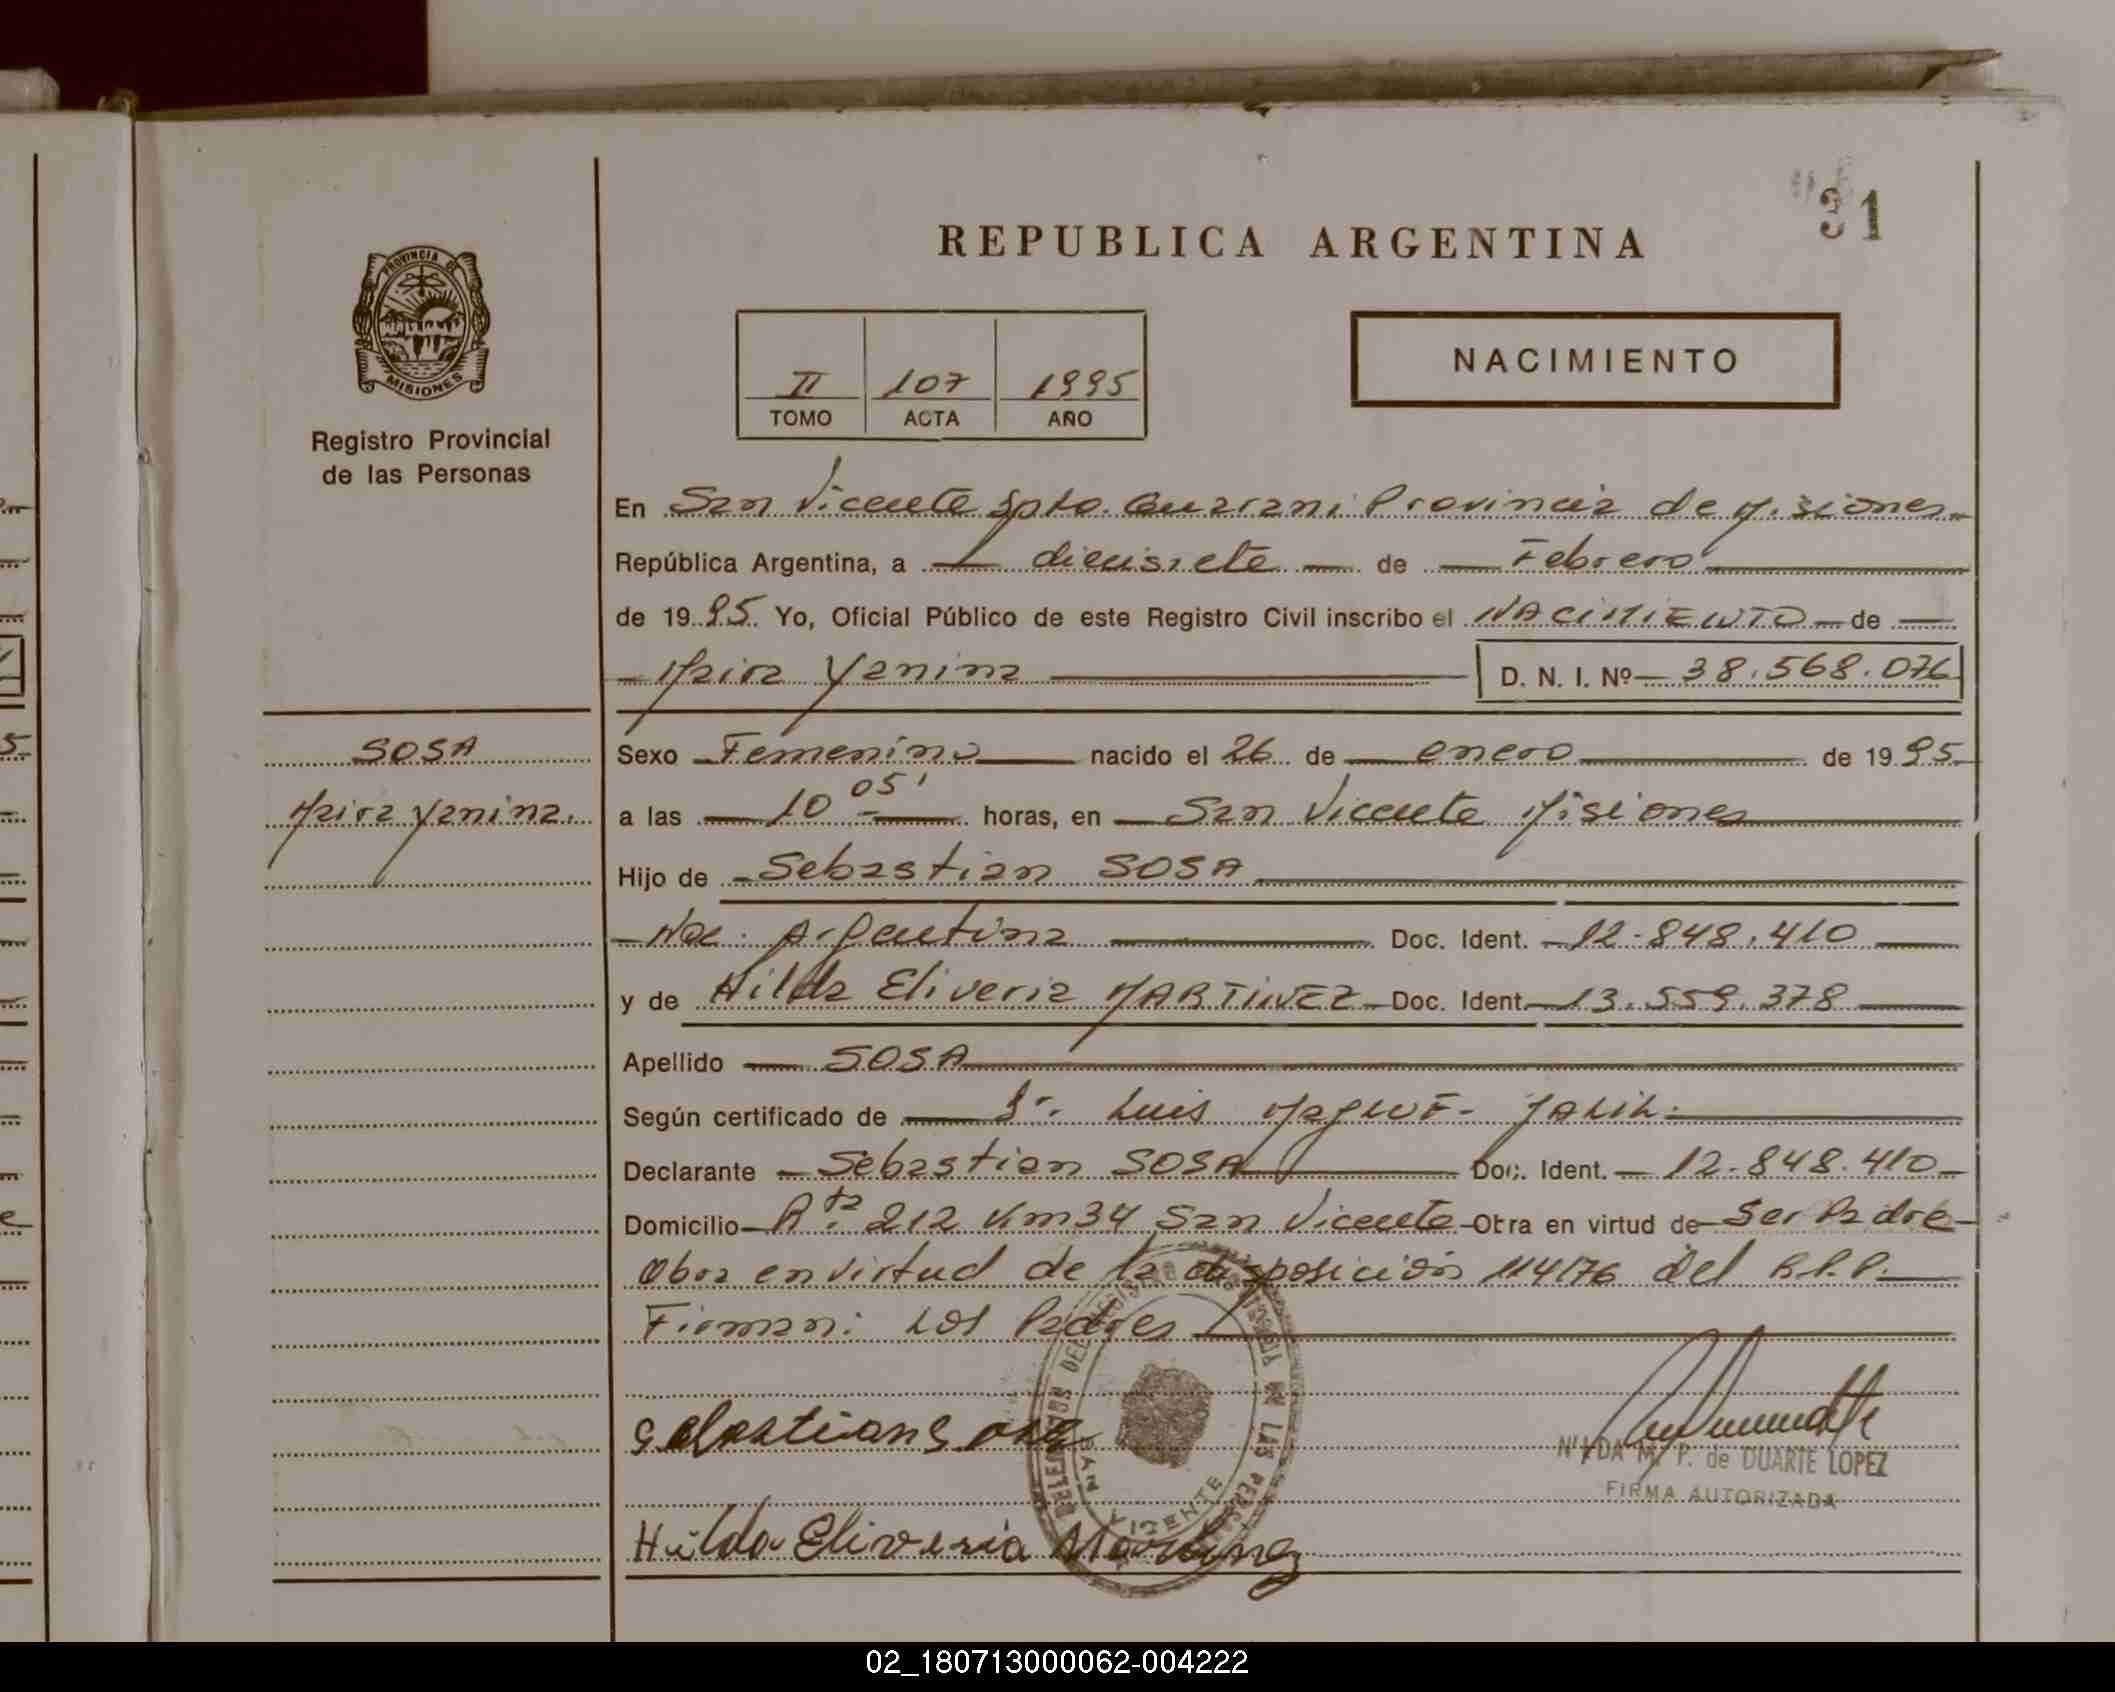 31
REPUBLICA ARGENTINA
PROVINCIA DE
MISIONES
Registro Provincial
de las Personas
II 107 1995
TOMO ACTA AÑO
NACIMIENTO
En San Vicente Dpto. Guarani Provincia de Misiones
República Argentina, a diecisiete de Febrero
de 1995 Yo, Oficial Público de este Registro Civil inscribo el NACIMIENTO de
Maira Yanina D. N. I. Nº 38.568.076
SOSA
Maira Yanina.
Sexo Femenino nacido el 26 de enero de 1995
a las 10 05' horas, en San Vicente Misiones
Hijo de Sebastian SOSA
Nac. Argentina Doc. Ident. 12.848.410
y de Hilda Eliveria MARTINEZ Doc. Ident. 13.559.378
Apellido SOSA
Según certificado de Dr. Luis
Declarante Sebastian SOSA Doc. Ident. 12.848.410
Domicilio Rta. 212 Km 34 San Vicente Otra en virtud de Ser Padre
Obra en virtud de la disposición 114/76 del R.P.P.
Firman: Los Padres
Sebastian Sosa
Hilda Eliveria Martinez
SAN VICENTE
NILDA M. P. de DUARTE LOPEZ
FIRMA AUTORIZADA
02_180713000062-004222